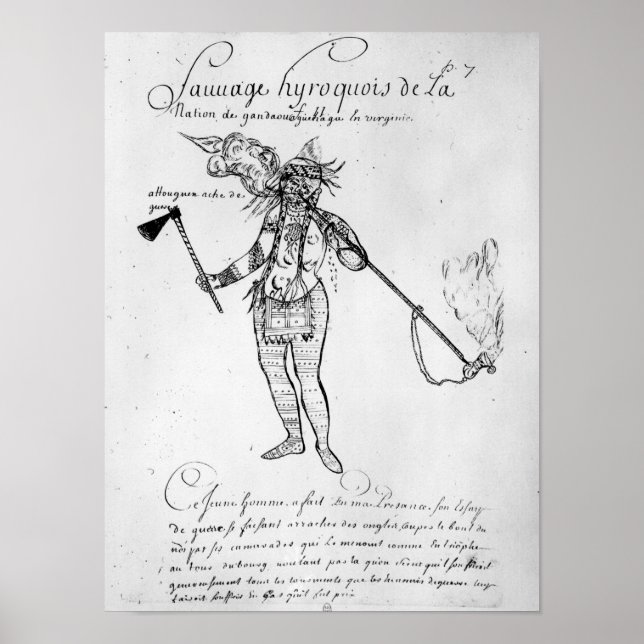 p. 7
Sauuage hyroquois de La
Nation de gandaouaguehaga En virginie.
attouguen ache de
guerre
Ce Jeune homme a fait En ma Présance son Essay
de guerre se faisant arracher des ongles, coupes le bout du
néz par ses camarades qui Le menoint comme En triophe
au tour du bourg voulant par la quon Vient quil souffriroit
genereusement tous les tourments que les Ennemis
Luy faisoit souffrir En Cas quil fut prix